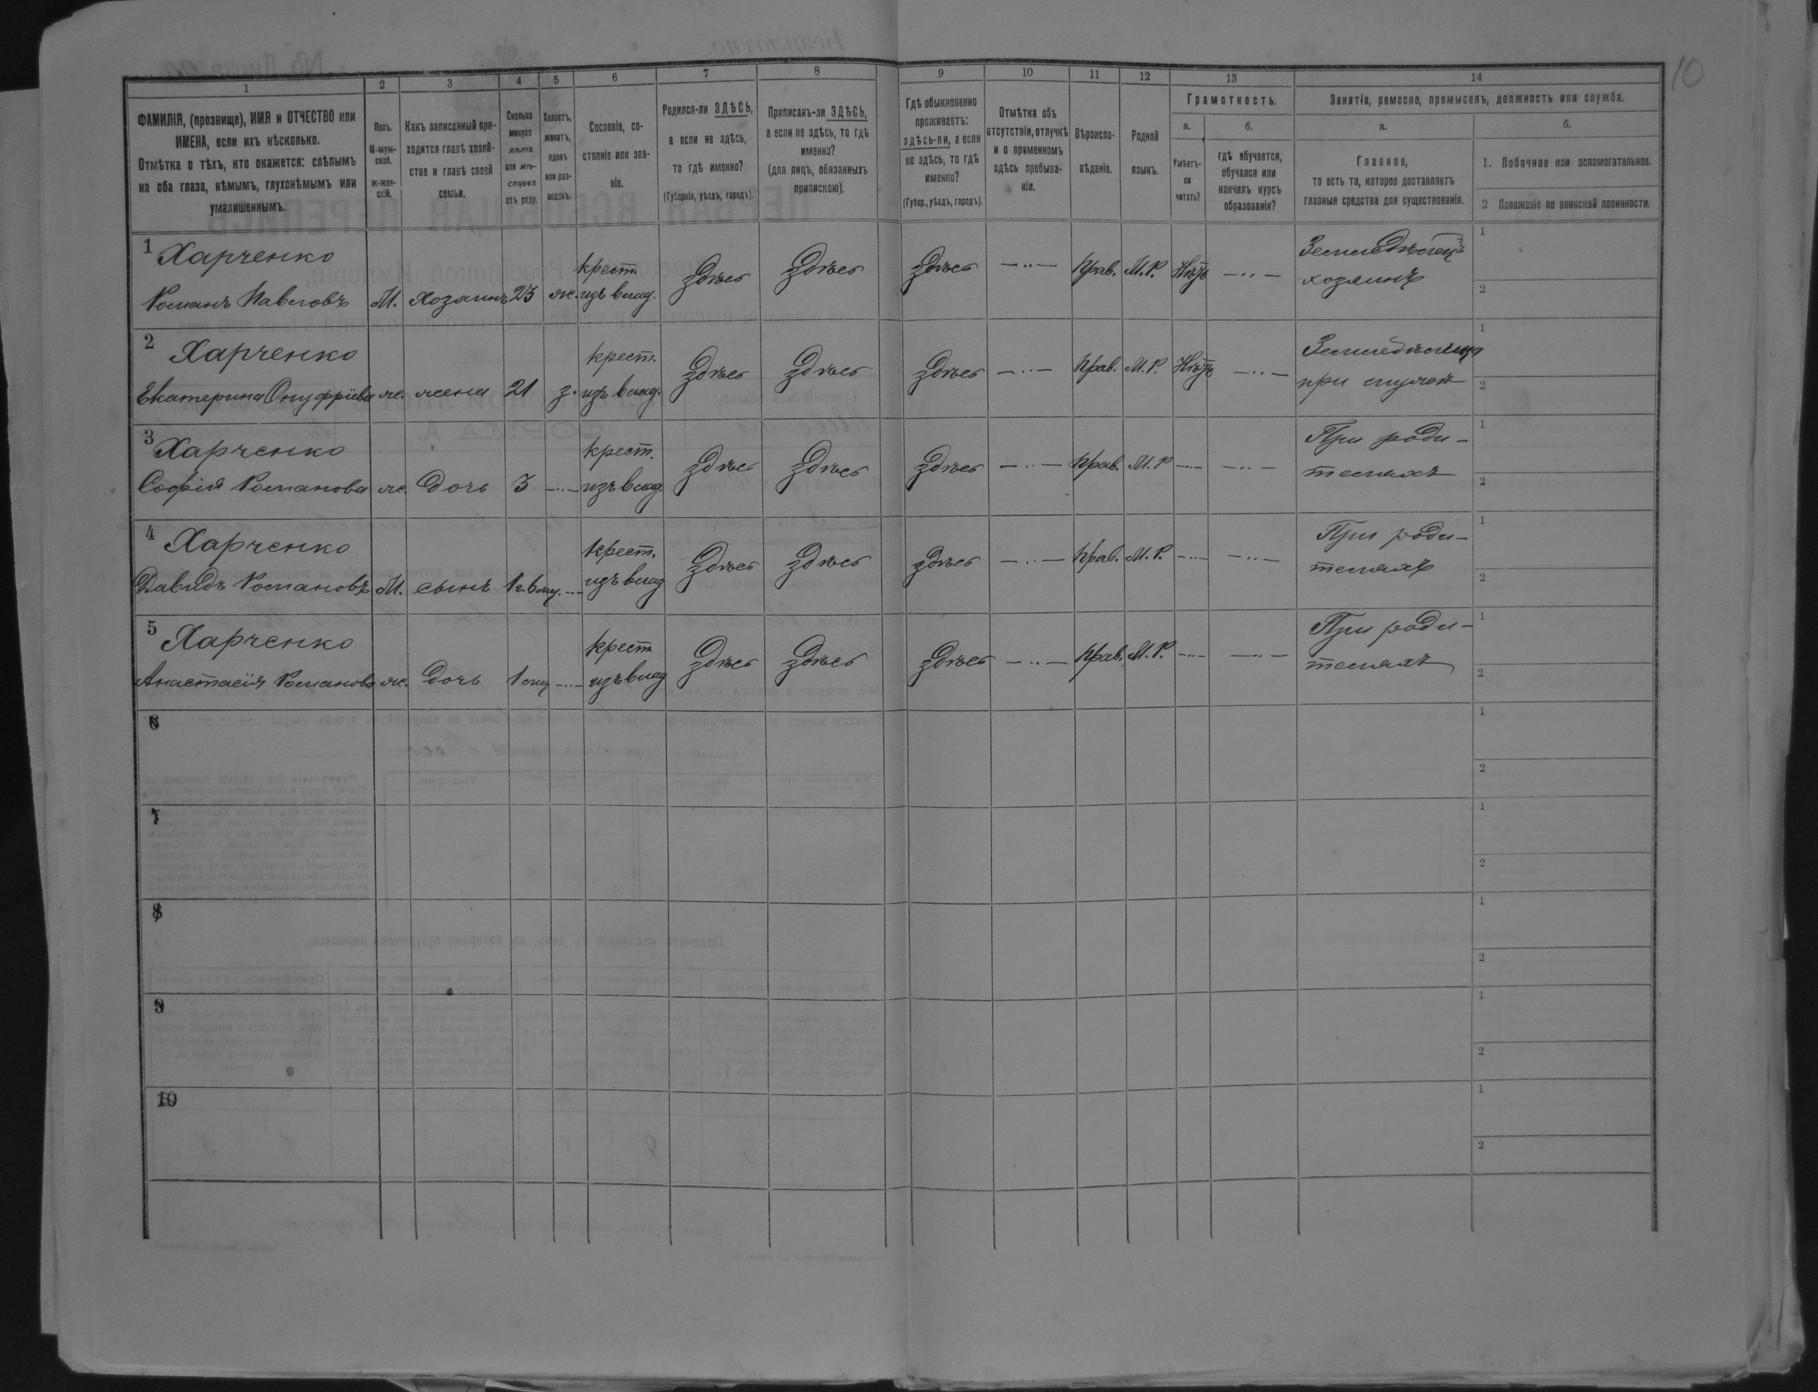 10
1 2 3 4 5 6 7 8 9 10 11 12 13 14
ФАМИЛІЯ, (прозвище), ИМЯ и ОТЧЕСТВО или
ИМЕНА, если ихъ нѣсколько.
Отмѣтка о тѣхъ, кто окажется: слѣпымъ
на оба глаза, нѣмымъ, глухонѣмымъ или
умалишеннымъ.
Полъ.
М-муж-
ской.
ж-жен-
скій.
Какъ записанный при-
ходится главѣ хозяй-
ства и главѣ своей
семьи.
Сколько
минуло
лѣтъ
или мѣ-
сяцевъ
отъ роду.
Холостъ,
женатъ,
вдовъ
или раз-
веденъ.
Сословіе, со-
стояніе или зва-
ніе.
Родился-ли ЗДѢСЬ,
а если не здѣсь,
то гдѣ именно?
(Губернія, уѣздъ, городъ).
Приписанъ-ли ЗДѢСЬ,
а если не здѣсь, то гдѣ
именно?
(для лицъ, обязанныхъ
припискою).
Гдѣ обыкновенно
проживаетъ:
здѣсь-ли, а если
не здѣсь, то гдѣ
именно?
(Губер., уѣздъ, городъ).
Отмѣтка объ
отсутствіи, отлучкѣ
и о временномъ
здѣсь пребыва-
ніи.
Вѣроиспо-
вѣданіе.
Родной
языкъ.
Грамотность.
а.
Умѣетъ-
ли
читать?
б.
гдѣ обучается,
обучался или
кончилъ курсъ
образованія?
Занятіе, ремесло, промыселъ, должность или служба.
а.
Главное,
то есть то, которое доставляетъ
главныя средства для существованія.
б.
1. Побочное или вспомогательное.
2 Положеніе по воинской повинности.
1 Харченко
Романъ Павловъ М. хозяинъ 23 ж. крест. изъ влад. Здѣсь Здѣсь Здѣсь — ·· — Прав. М.Р. Нѣтъ — ·· — Земледѣлецъ
хозяинъ
1
2
2 Харченко
Екатерина Онуфріева ж. жена 21 з. крест. изъ влад. Здѣсь Здѣсь Здѣсь — ·· — Прав. М.Р. Нѣтъ — ·· —
при мужѣ
1
2
3 Харченко
Софія Романова ж. дочь 3 — ·· — крест. изъ влад. Здѣсь Здѣсь Здѣсь — ·· — Прав. М.Р. — ·· — — ·· — При роди-
теляхъ
1
2
4 Харченко
Давидъ Романовъ М. сынъ — ·· — крест. изъ влад Здѣсь Здѣсь Здѣсь — ·· — Прав. М.Р. — ·· — — ·· — При роди-
теляхъ
1
2
5 Харченко
Анастасія Романова ж. дочь — ·· — крест изъ влад Здѣсь Здѣсь Здѣсь — ·· — Прав. М.Р. — ·· — — ·· — При роди-
теляхъ
1
2
6
1
2
7
1
2
8
1
2
9
1
2
10
1
2